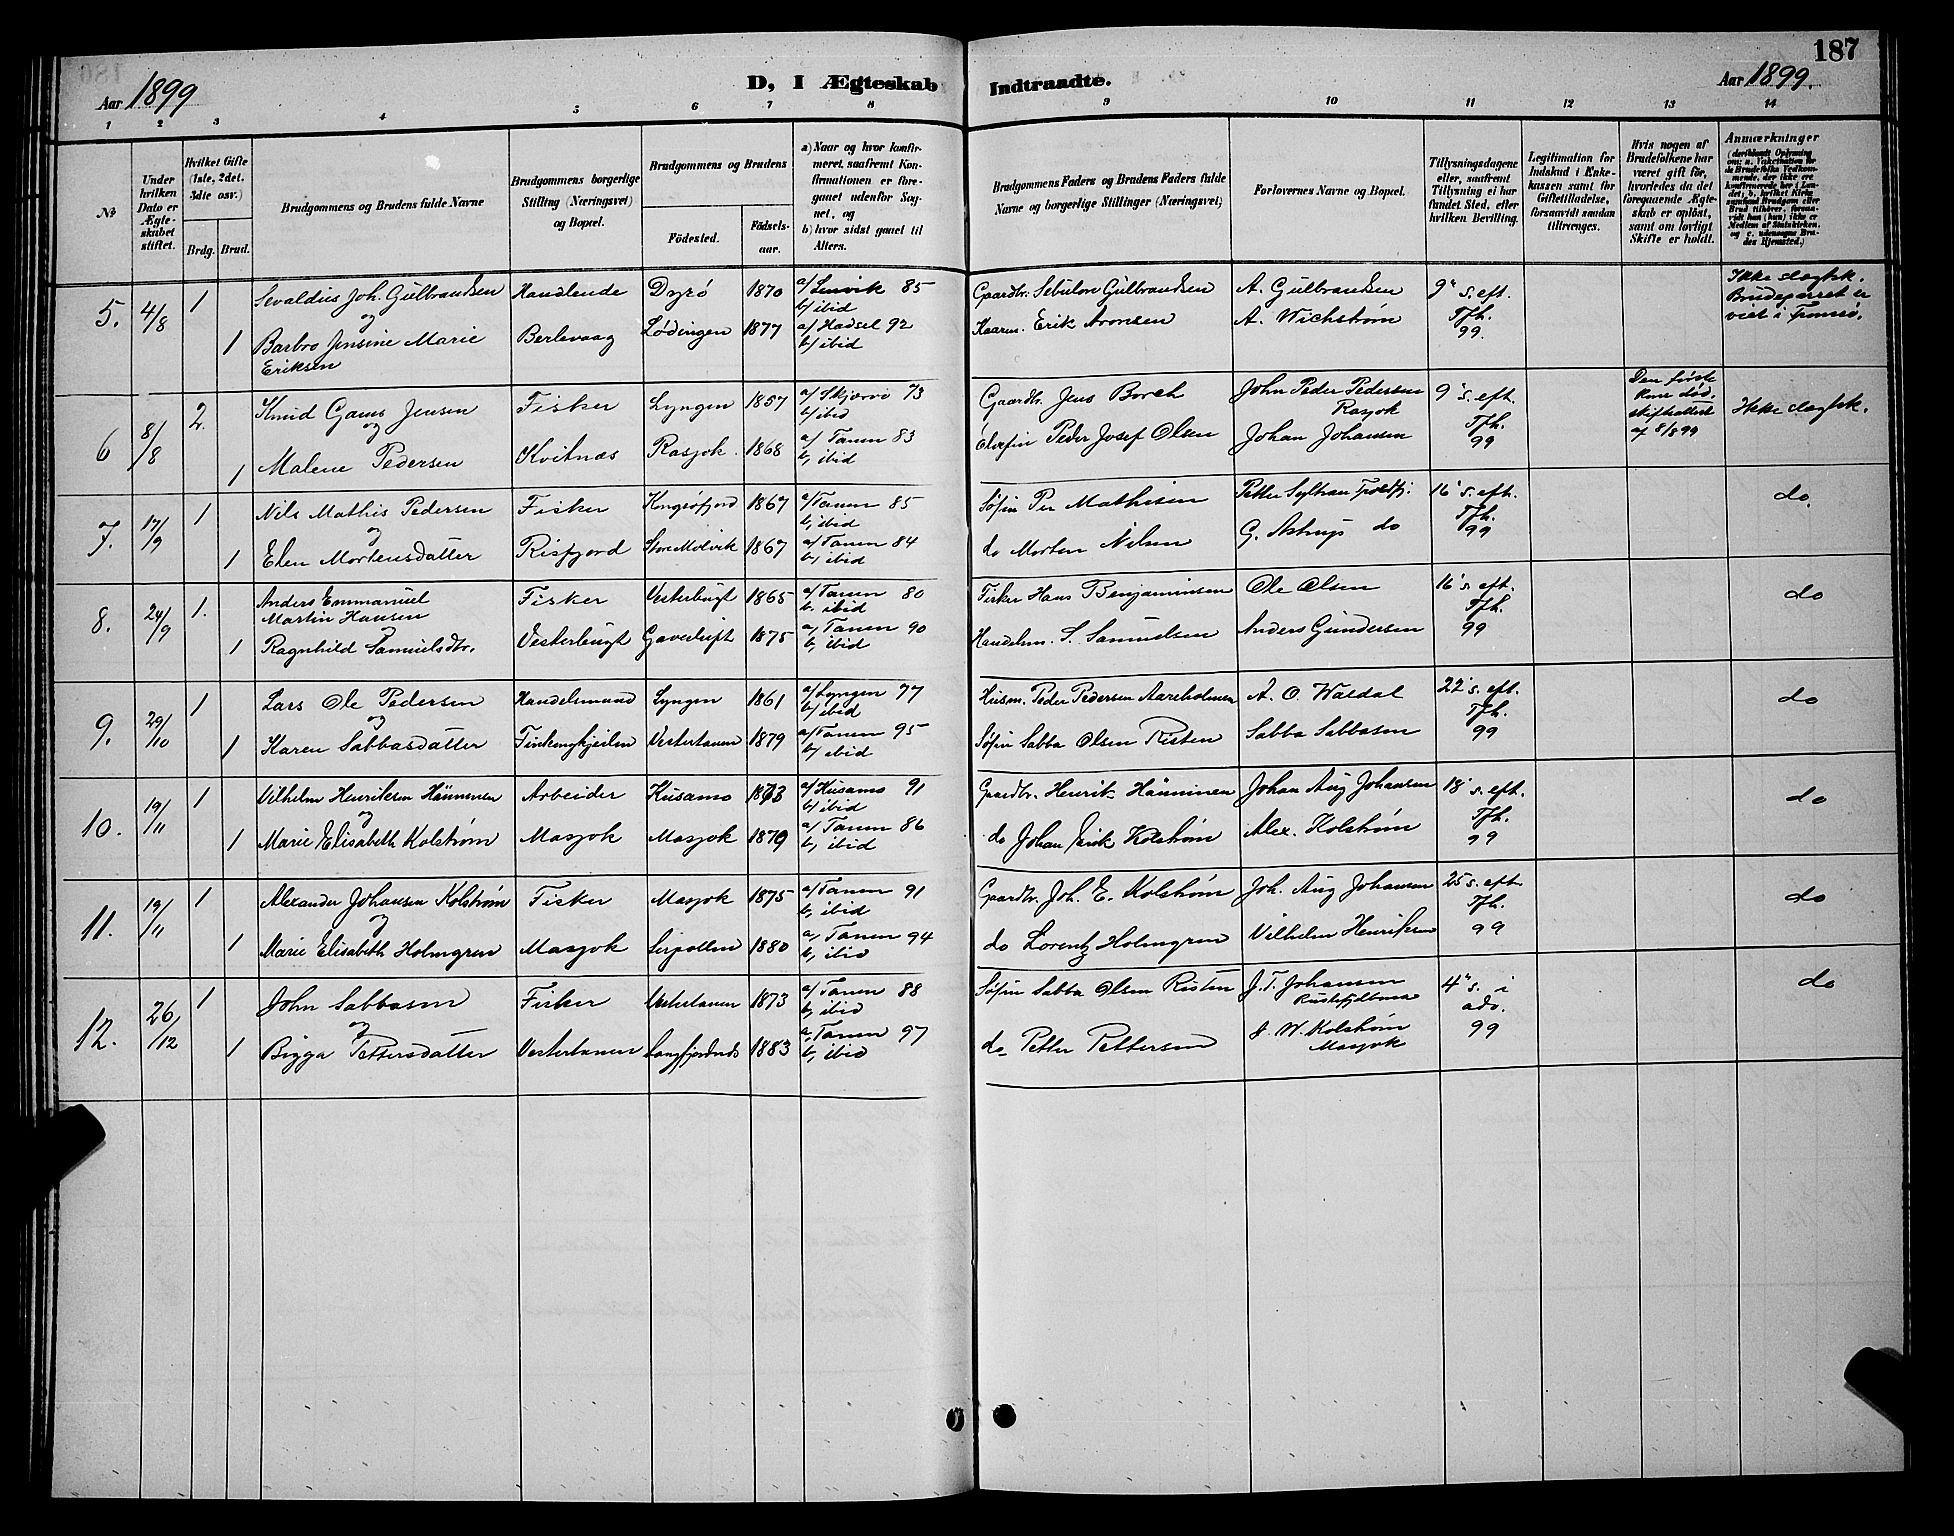 187
Aar 1899
D, I Ægteskab Indtraadte.
Aar 1899.
1 2 3 4 5 6 7 8 9 10 11 12 13 14
№
Under hvilken Dato er Ægteskabet stiftet.
Hvilket Gifte (1ste, 2det, 3die osv.)
Brdg. Brud.
Brudgommens og Brudens fulde Navne
Brudgommens borgerlige Stilling (Næringsvei) og Bopæl.
Brudgommens og Brudens
Fødested.
Fødselsaar.
a) Naar og hvor konfirmeret, saafremt Konfirmationen er foregaaet udenfor Sognet, og
b) hvor sidst gaaet til Alters.
Brudgommens Faders og Brudens Faders fulde Navne og borgerlige Stillinger (Næringsvei)
Forlovernes Navne og Bopæl.
Tillysningsdagene eller, saafremt Tillysning ei har fundet Sted, efter hvilken Bevilling.
Legitimation for Indskud i Enkekassen samt for Giftetilladelse, forsaavidt saadan tiltrænges.
Hvis nogen af Brudefolkene har været gift før, hvorledes da det foregaaende Ægteskab er opløst, samt om lovligt Skifte er holdt.
Anmærkninger
5. 4/8 1 Sevaldius Joh. Gulbrandsen Handlende Dyrö 1870 a/ Lenvik 85 Gaardbr. Sebulon Gulbrandsen A. Gulbrandsen 9' s. eft. Ikke slægtsk.
og b/ ibid Tfh. Brudeparret er
1 Barbro Jensine Marie Berlevaag Lødingen 1877 a/ Hadsel 92 Erik Aronsen A. Wichstrøm 99. viet i Tromsö.
Eriksen b/ ibid
6 8/8 2. Knud Gams Jensen Fisker Lyngen 1857 a/ Skjærvö 73 Gaardbr. Jens Borch John Peder Pedersen 9' s. eft. Den første Kone död. Ikke slægtsk.
og b/ ibid Rasjok Tfh. skifteattest
1 Malene Pedersen Kvitnæs Rasjok. 1868 a/ Tanen 83 Elvefin Peder Josef Olsen Johan Johansen 99 af 8/8 99
b, ibid
7. 17/9 1 Nils Mathis Pedersen Fisker Kongsöfjord 1867 a/ Tanen 85 Söfin Per Mathisen Petter Sylvan Troldfj. 16' s. eft. do.
og b, ibid Tfh.
1 Elen Mortensdatter Risfjord Store Molvik 1867 a/ Tanen 84 do Morten Nilsen G. Astrup do 99
b, ibid
8. 24/9 1. Anders Emmanuel Fisker Vesterbugt 1865 a/ Tanen 80 Fisker Hans Benjaminsen Ole Olsen 16' s. eft. do
Martin Hansen b, ibid Tfh.
1 Ragnhild Samuelsdtr. Vesterbugt 1875 a, Tanen 90 Handelsm. S. Samuelsen Anders Gundersen 99
b, ibid
9. 29/10 1 Lars Ole Pedersen Handelsmand Lyngen 1861 a/ Lyngen 77 Husm. Peder Pedersen Aarsholmen A. O. Waldal 22' s. eft. do
og b/ ibid Tfh.
1 Karen Sabbasdatter Vestertanen 1879 a/ Tanen 95 Söfin Sabba Olsen Risten Sabba Sabbasen 99
b/ ibid
10. 19/11 1 Vilhelm Henriksen Hänninen Arbeider Kusamo 1873 a/ Kusamo 91 Gaardbr. Henrik Hänninen Johan Aug Johansen 18' s. eft. do
og b/ ibid Tfh.
1 Marie Elisabeth Kolstrøm Masjok Masjok 1870 a/ Tanen 86 do Johan Erik Kolstrøm Alex. Kolstrøm 99
b, ibid
11. 19/11 1 Alexander Johansen Kolstrøm Fisker Masjok 1875 a/ Tanen 91 Gaardbr. Joh. E. Kolstrøm Joh. Aug Johansen 25 s. eft. do
og b, ibid Tfh.
1 Marie Elisabeth Holmgren Masjok Seipollen 1880 a, Tanen 94 do Lorentz Holmgren Vilhelm Henriksen 99
b, ibid
12. 26/12 1 John Sabbasen Fisker Vestertanen 1873 a/ Tanen 88 Söfin Sabba Olsen Risten J. T. Johansen 4' s. i do
og b, ibid Rustefjelbma adv.
1 Bigga Pettersdatter Vestertanen Langfjordnæs 1883 a, Tanen 97 do Petter Pettersen J. W. Kolstrøm 99
b, ibid Masjok